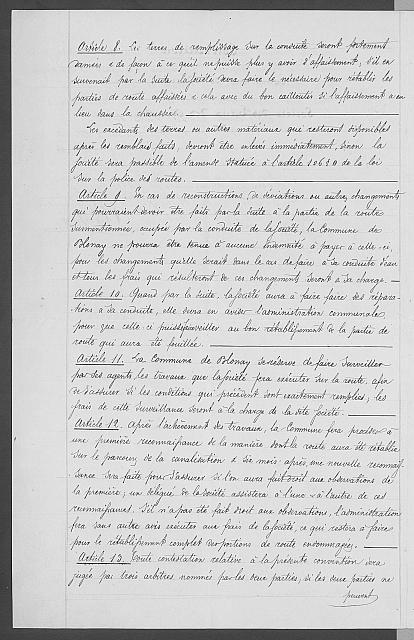 Article 8. Les terres de remplissage sur la conduite seront fortement
damées & de façon à ce qu'il ne puisse plus y avoir d'affaissement, s'il en
survenait par la suite la société devra faire le nécessaire pour rétablir les
parties de route affaissées & cela avec du bon cailloutis si l'affaissement a eu
lieu dans la chaussée.
Les excédents des terres ou autres matériaux qui resteront disponibles
après les remblais faits, devront être enlevés immédiatement, sinon la
société sera passible de l'amende statuée à l'article de la loi
sur la police des routes.
Article 9. En cas de reconstructions, de déviations ou autres changements
qui pourraient devoir être faits par la suite à la partie de la route
susmentionnée, occupée par la conduite de la société, la Commune de
Blonay ne pourra être tenue à aucune indemnité à payer à celle-ci,
pour les changements qu'elle serait dans le cas de faire à sa conduite d'eau
et tous les frais qui résulteront de ces changements seront à sa charge.
Article 10. Quand par la suite, la société aura à faire faire des répara-
tions à sa conduite, elle devra en aviser l'administration communale
pour que celle-ci puisse surveiller au bon rétablissement de la partie de
route qui aura été fouillée.
Article 11. La Commune de Blonay se réserve de faire surveiller
par ses agents, les travaux que la société fera exécuter sur la route, afin
de s'assurer si les conditions qui précèdent sont exactement remplies; les
frais de cette surveillance seront à la charge de la dite société.
Article 12. Après l'achèvement des travaux, la Commune fera procéder à
une première reconnaissance de la manière dont la route aura été rétablie
sur le parcours de la canalisation & six mois après, une nouvelle reconnais-
sance sera faite pour s'assurer si l'on aura fait droit aux observations de
la première; un délégué de la société assistera à l'une & à l'autre de ces
reconnaissances. S'il n'a pas été fait droit aux observations, l'administration
fera sans autre avis exécuter aux frais de la société, ce qui restera à faire
pour le rétablissement complet des portions de route endommagées.
Article 13. Toute contestation relative à la présente convention sera
jugée par trois arbitres nommés par les deux parties; si les deux parties ne
peuvent